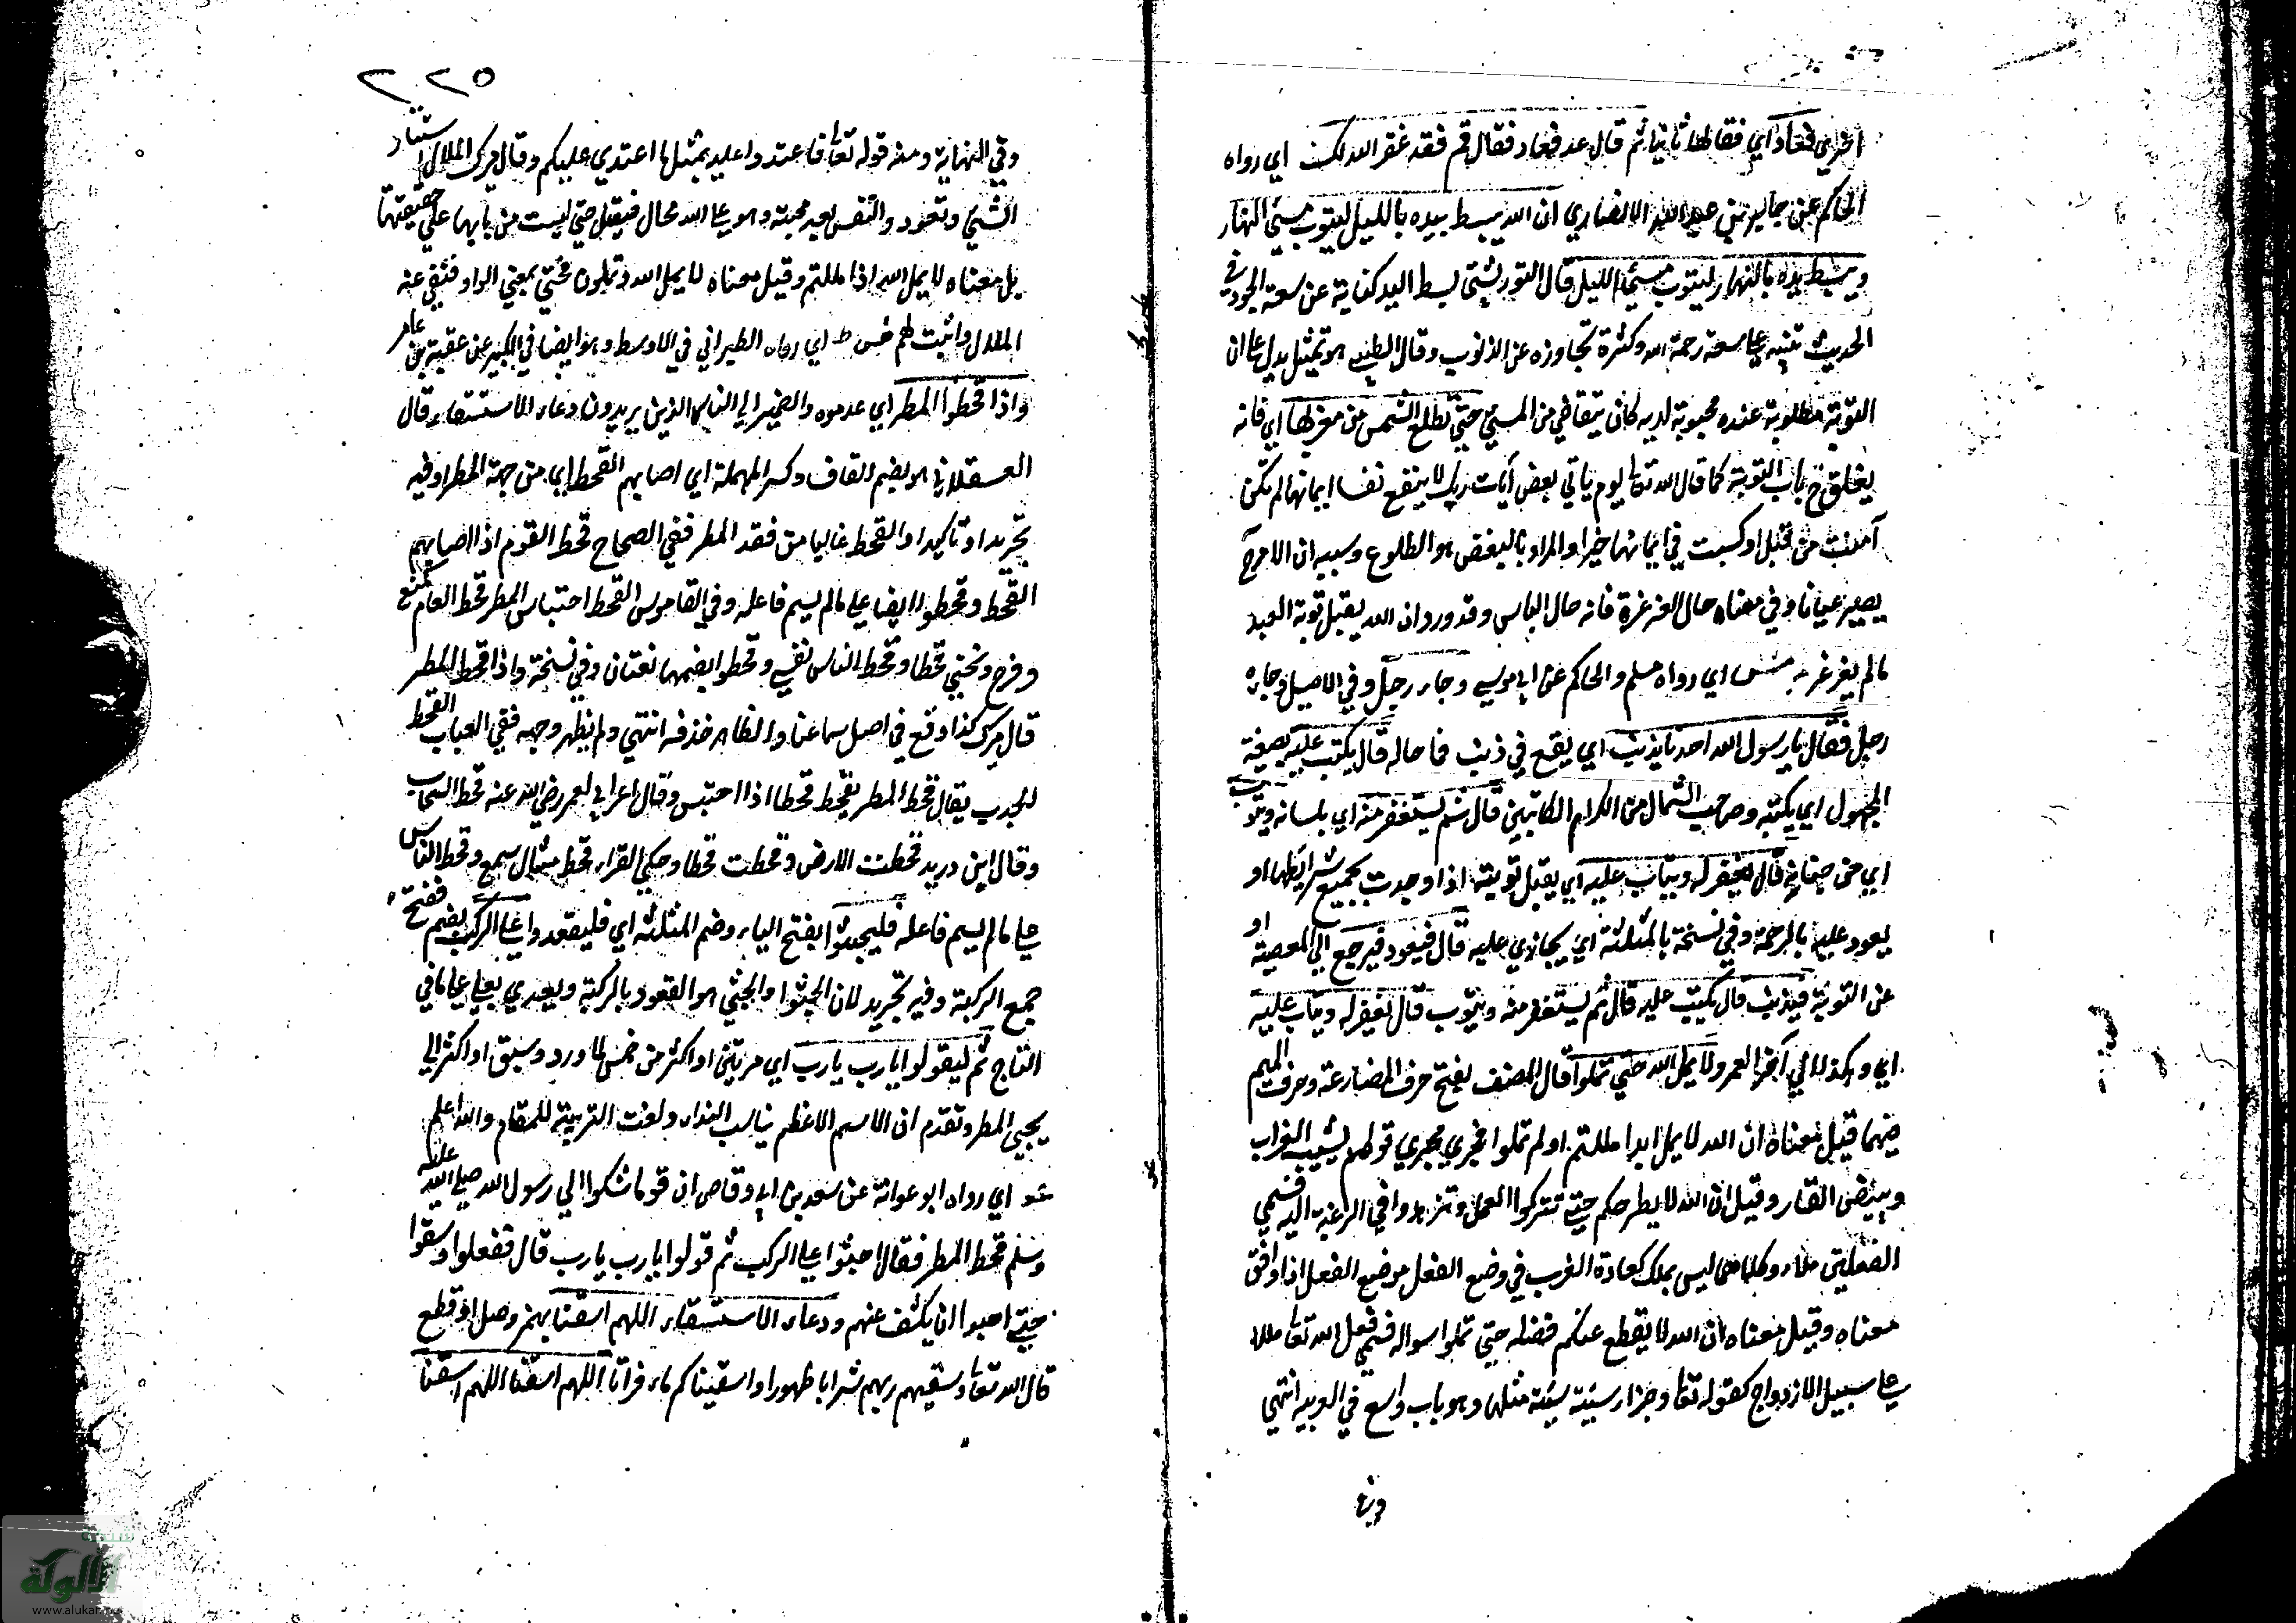 اخري فعاد اي فقالها ثانيا ثم قال عد فعاد فقال قم فقد غفر الله لك اي رواه
الحاكم عن جابر بن عبد الله الانصاري ان الله يبسط يده بالليل ليتوب مسئ النهار
ويبسط يده بالنهار ليتوب مسئ الليل قال التوربشتي بسط اليد كناية عن سعة الجود وفي
الحديث تنبيه على سعة رحمة الله وكثرة تجاوزه عن الذنوب وقال الطيبي هو تمثيل يدل على ان
التوبة مطلوبة عنده محبوبة لديه كان يتقاضي من المسئ حتي تطلع الشمس من مغربها اي فانه
يغلق ح باب التوبة كما قال الله تعا يوم ياتي بعض آيات ربك لا ينفع نفسا ايمانها لم تكن
آمنت من قبل او كسبت في ايمانها خيرا والمراد بالبعض هو الطلوع وسببه ان الامر ح
يصير عيانا وفي معناه حال الغرغرة فانه حال الباس وقد ورد ان الله يقبل توبة العبد
مالم يغرغر مس اي رواه مسلم والحاكم عن ابي موسي وجاء رجل وفي الاصيل وجاءه
رجل فقال يا رسول الله احدنا يذنب اي يقع في ذنب فما حاله قال يكتب عليه بصيغة
المجهول اي يكتبه صاحب الشمال من الكرام الكاتبين قال ثم يستغفر منه اي بلسانه ويتوب
اي من جنانه قال يغفر له ويتاب عليه اي يقبل توبته اذا وجدت بجميع شرايطها او
يعود عليه بالرحمة وفي نسخة بالمثلثة اي يجازي عليه قال فيعود فيرجع الي المعصية او
عن التوبة فيذنب قال يكتب عليه قال ثم يستغفر منه ويتوب قال يغفر له ويتاب عليه
اي وهكذا الي آخر العمر ولا يمل الله حتي تملوا قال المصنف بفتح حرف المضارعة وحرف الميم
منهما قيل معناه ان الله لا يمل ابدا مللتم او لم تملوا فجري مجري قولهم يشيب الغراب
ويبيض القار وقيل ان الله لا يطرحكم حتي تتركوا العمل وتزهدوا في الرغبة اليه فسمي
الفعلين مللا وكلاهما ليس بملل كعادة العرب في وضع الفعل موضع الفعل اذا وافق
معناه وقيل معناه ان الله لا يقطع عنكم فضله حتي تملوا سواله فسمي فعل الله تعا مللا
على سبيل الازدواج كقوله تعا وجزاء سيئة سيئة مثلها وهو باب واسع في العربية انتهي
وفي
٢٢٥
وفي النهاية ومنه قوله تعا فاعتدوا عليه بمثل ما اعتدي عليكم وقال ميرك الملال استثقال
الشئ ونفور النفس بعد محبته وهو على الله محال فقيل حتي ليست من بابها على حقيقتها
بل معناه لا يمل الله اذا مللتم وقيل معناه لا يمل الله وتملون فحتي بمعني الواو فنفي عنه
الملال واثبت لهم طس ط اي رواه الطبراني في الاوسط وهو ايضا في الكبير عن عقبة بن عامر
واذا قحطوا المطر اي عدموه والضمير الي الناس الذين يريدون دعاء الاستسقاء قال
العسقلاني هو بضم القاف وكسر المهملة اي اصابهم القحط اي من جهة المطر او فيه
تجريد او تاكيد اذ القحط غالبا من فقد المطر ففي الصحاح قحط القوم اذا اصابهم
القحط وقحطوا ايضا على مالم يسم فاعله وفي القاموس القحط احتباس المطر قحط العام كمنع
وفرح وعني قحطا وقحط الناس كفي وقحطوا بضمهما لغتان وفي نسخة واذا قحط المطر
قال ميرك كذا وقع في اصل سماعنا والظاهر حذفه انتهي ولم يظهر وجهه ففي العباب القحط
الجدب يقال قحط المطر يقحط قحطا اذا احتبس وقال اعرابي لعمر رضي الله عنه قحط السحاب
وقال ابن دريد قحطت الارض وقحطت قحطا وحكي الفراء قحط مثال سمع وقحط الناس
على مالم يسم فاعله فليجثوا بفتح الياء وضم المثلثة اي فليقعدوا على الركب بضم ففتح
جمع الركبة وفيه تجريد لان الجثوا والجثي هو القعود بالركبة ويعدي بعلي على مافي
التاج ثم ليقولوا يا رب يا رب اي مرتين او اكثر من خمس لما ورد وسبق او اكثر الي
يجئ المطر وتقدم ان الاسم الاعظم يناسب النداء ولفت التربية للمقام والله اعلم
عو اي رواه ابو عوانة عن سعد بن ابي وقاص ان قوما شكوا الي رسول الله صلي الله عليه
وسلم قحط المطر فقال اجثوا على الركب ثم قولوا يا رب يا رب قال ففعلوا وسقوا
حتي احبوا ان يكشف عنهم ودعاء الاستسقاء اللهم اسقنا بهمز وصل او قطع
قال الله تعا وسقيهم ربهم شرابا طهورا واسقيناكم ماء فراتا اللهم اسقنا اللهم اسقنا
الألوكة
www.alukah.net